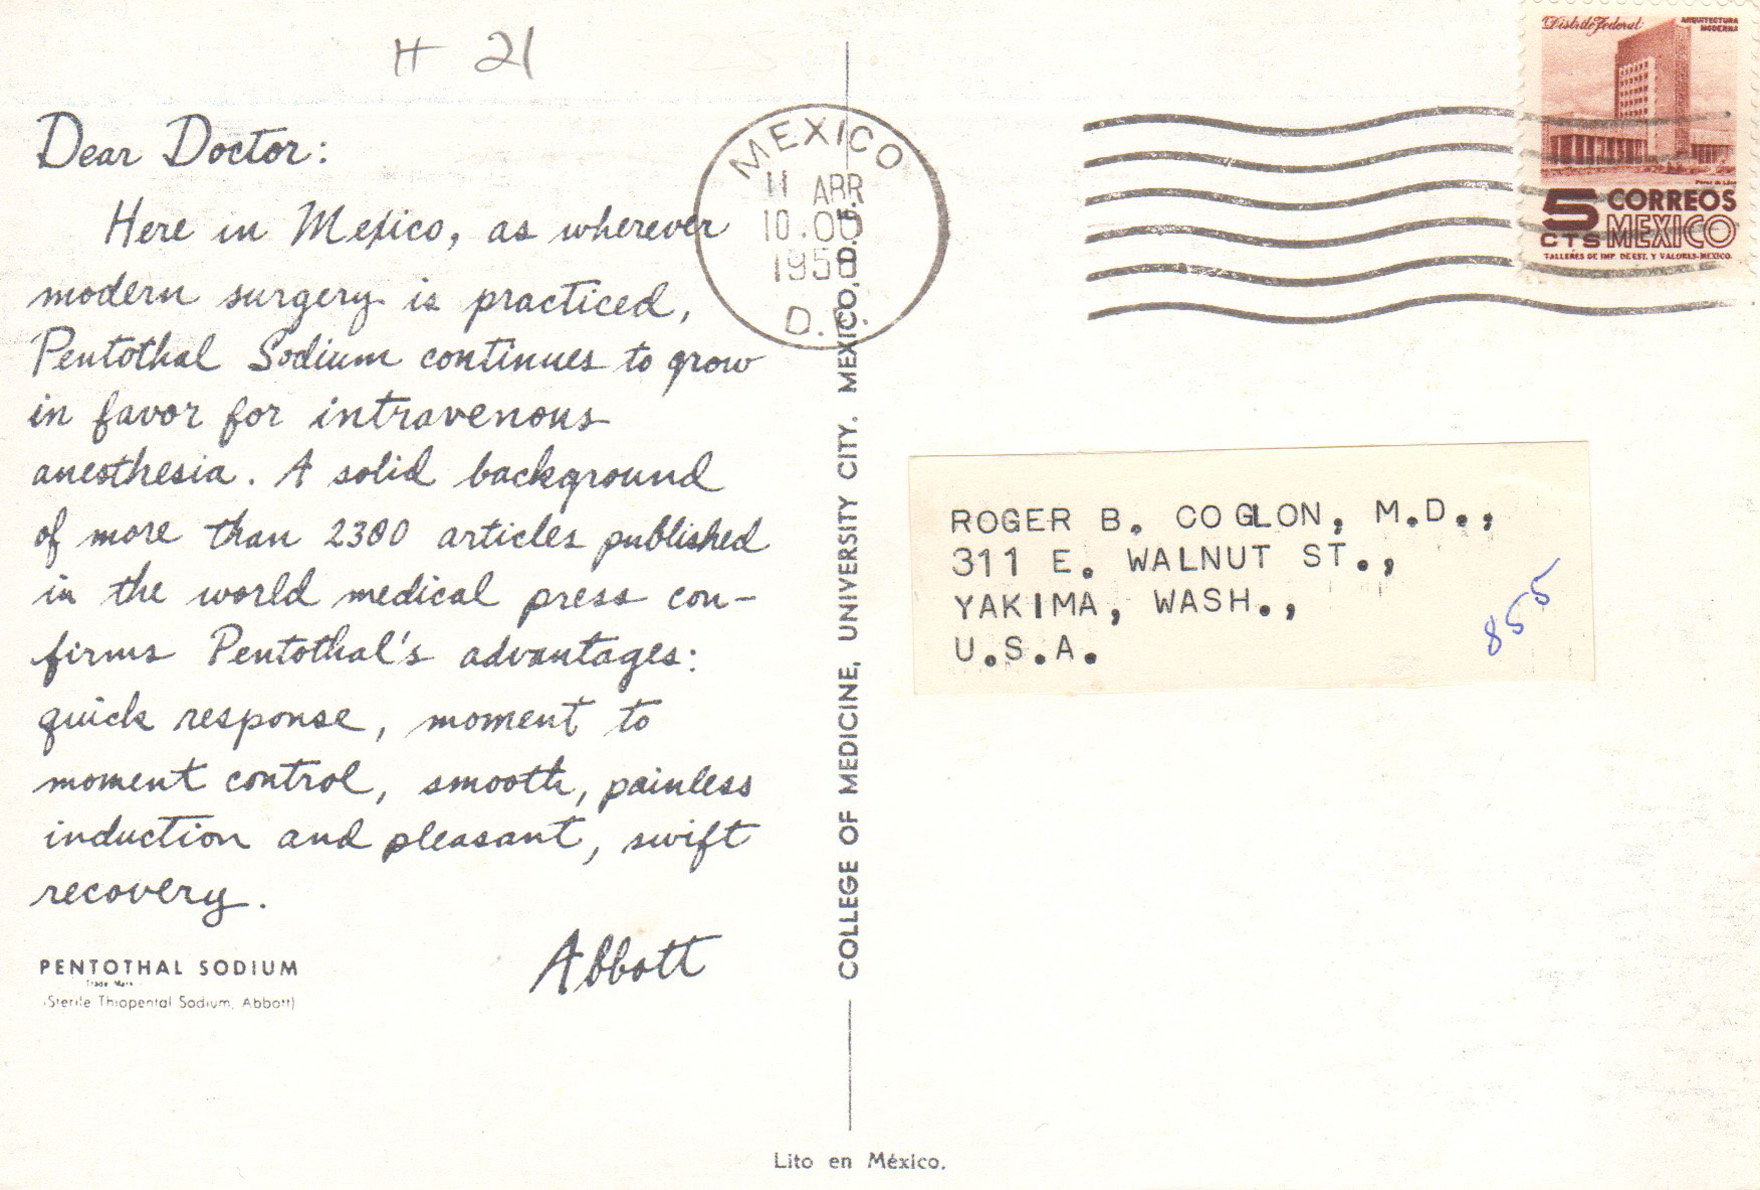 H 21
Dear Doctor:
Here in Mexico, as wherever
modern surgery is practiced,
Pentothal Sodium continues to grow
in favor for intravenous
anesthesia. A solid background
of more than 2300 articles published
in the world medical press con-
firms Pentothal's advantages:
quick response, moment to
moment control, smooth, painless
induction and pleasant, swift
recovery.
Abbott
PENTOTHAL SODIUM
Trade Mark
(Sterile Thiopental Sodium, Abbott)
COLLEGE OF MEDICINE, UNIVERSITY CITY. MEXICO, D.F.
MEXICO
11 ABR
10.00
1958
D.F.
Distrito Federal
ARQUITECTURA
MODERNA
5 CTS
CORREOS
MEXICO
TALLERES DE IMP. DE EST. Y VALORES-MEXICO.
ROGER B. COGLON, M.D.,
311 E. WALNUT ST.,
YAKIMA, WASH.,
U.S.A.
855
Lito en México.